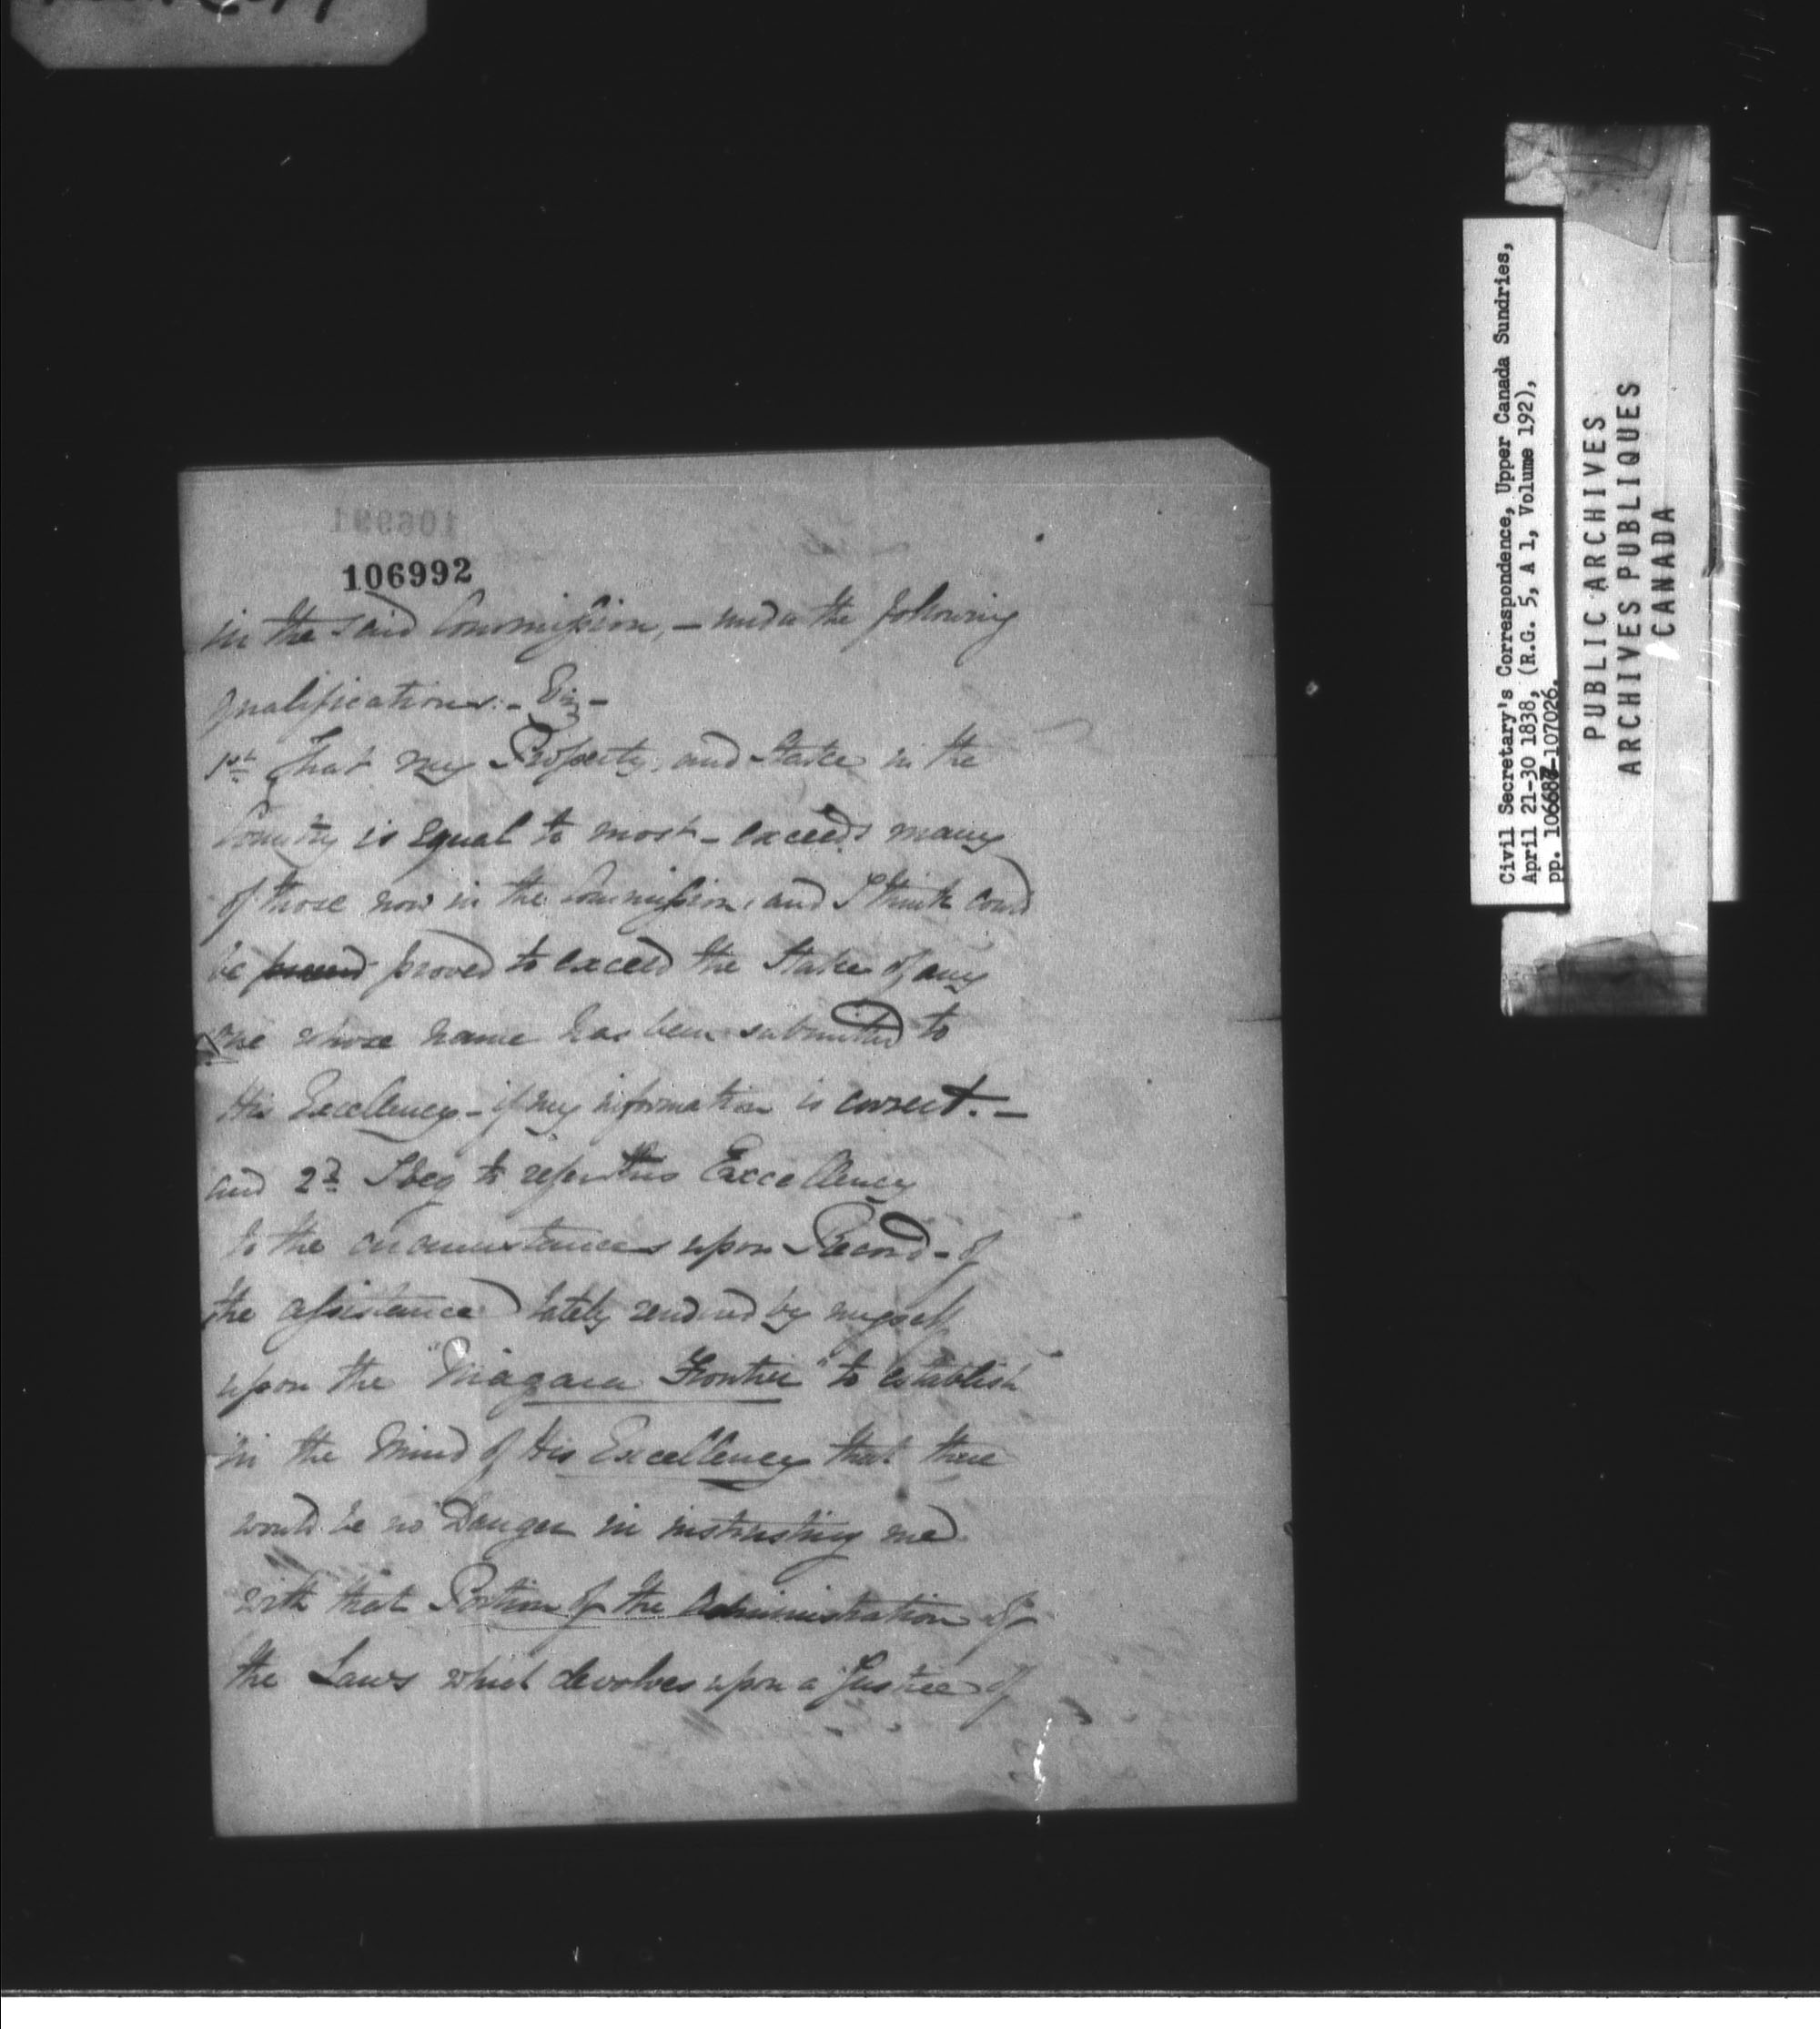 106992
in the said Commission, – under the following
qualifications: – Viz –
1st That my Property, and Stake in the
Country is equal to most – exceeds many
of those now in the Commission, and I think could
be proved to exceed the Stake of any
one whose name has been submitted to
His Excellency – if my information is correct. –
and 2d I beg to refer His Excellency
to the circumstances upon Record – of
the assistance lately rendered by myself
upon the "Niagara Frontier" to establish
in the Mind of His Excellency that there
would be no Danger in instrusting me
with that Portion of the Administration of
the Laws which devolves upon a Justice of
Civil Secretary's Correspondence, Upper Canada Sundries,
April 21-30 1838, (R.G. 5, A 1, Volume 192),
pp. 106687-107026.
PUBLIC ARCHIVES
ARCHIVES PUBLIQUES
CANADA